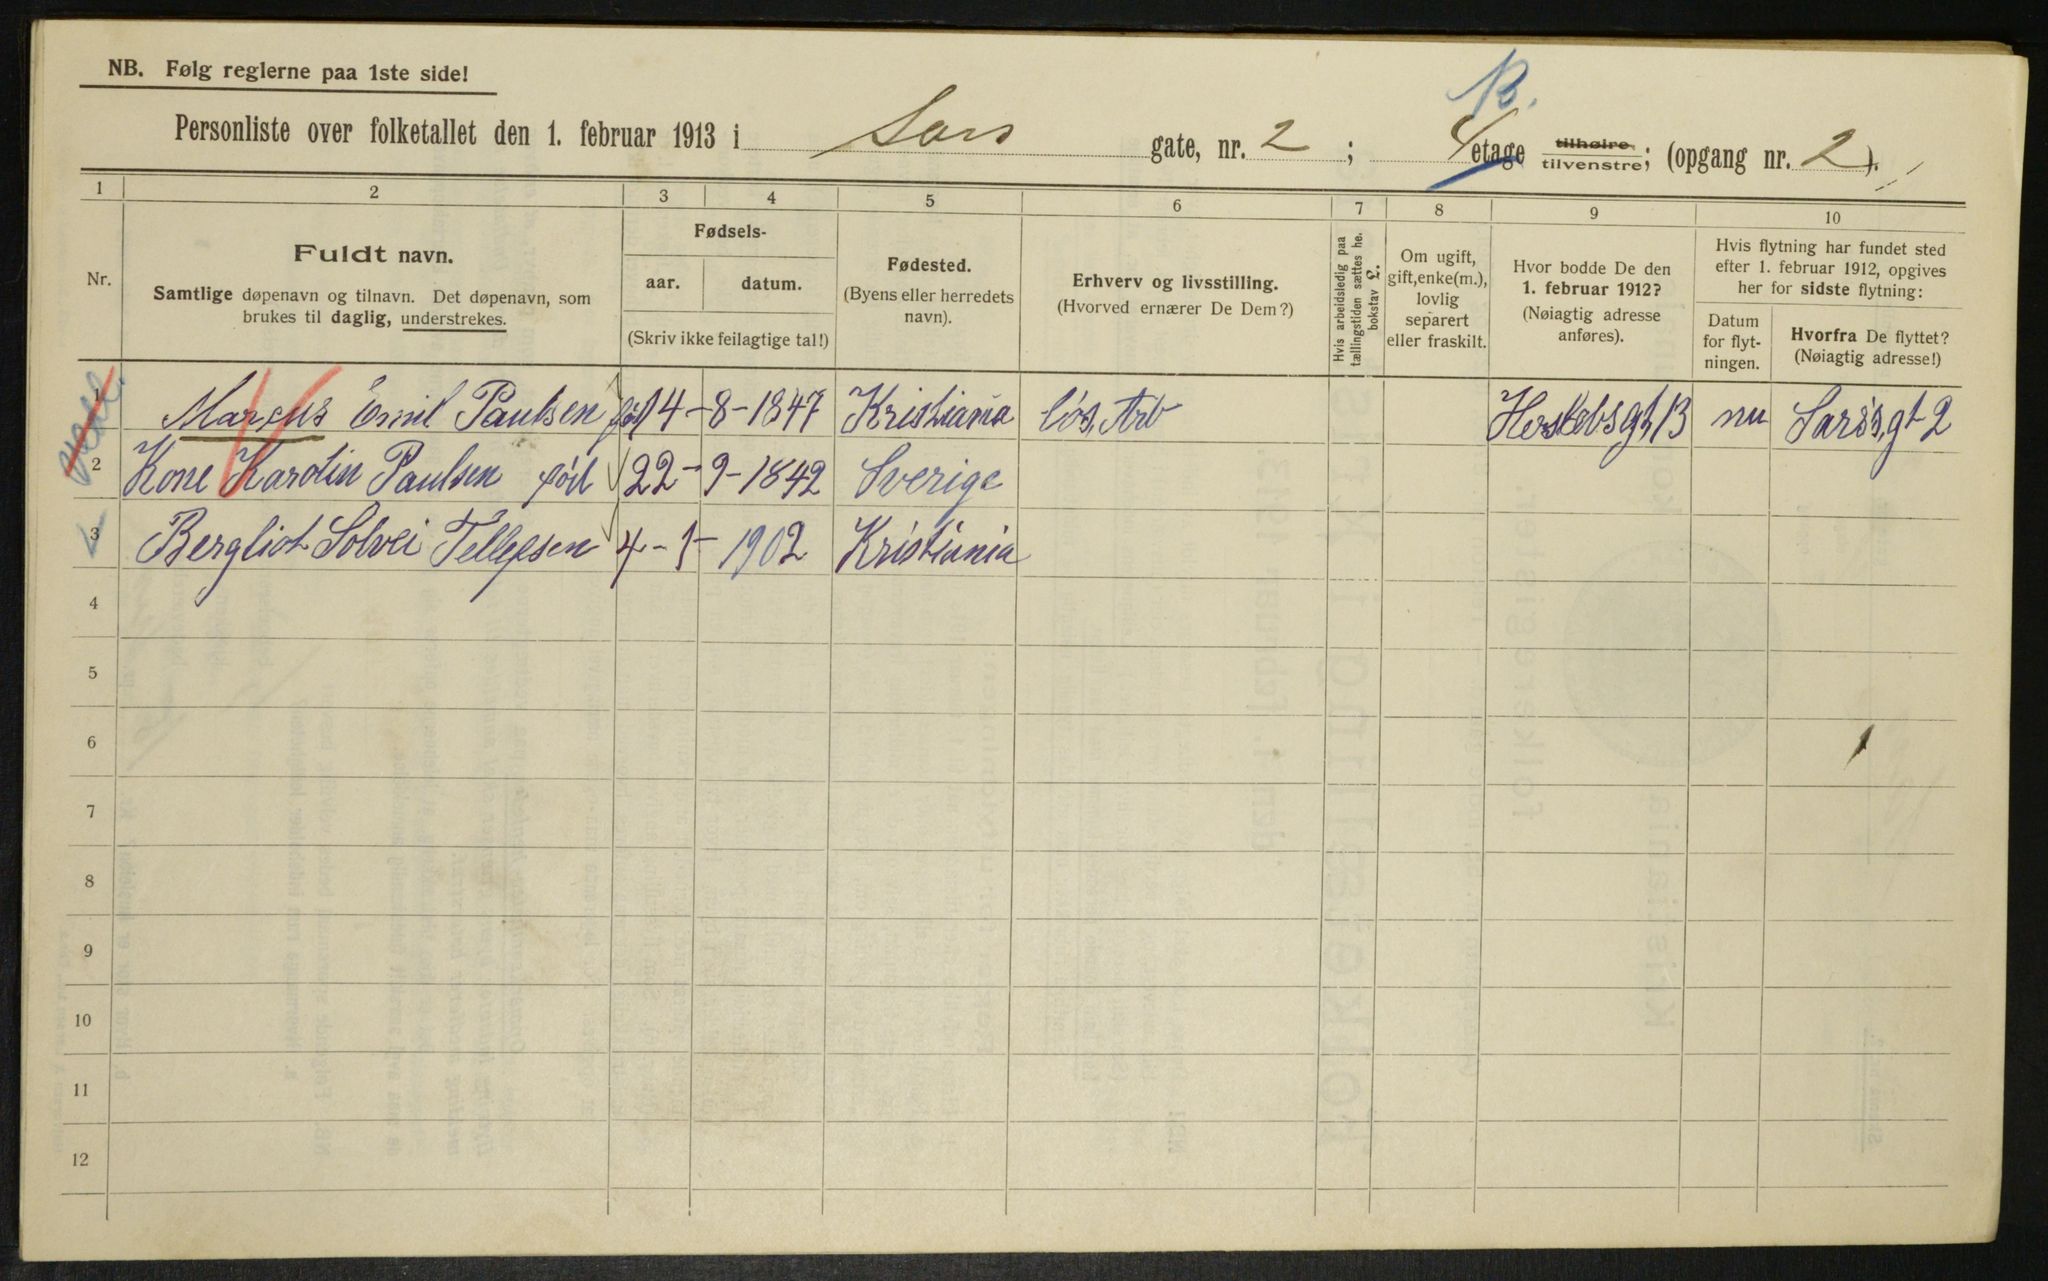 NB. Følg reglerne paa 1ste side!
B.
Personliste over folketallet den 1. februar 1913 i Sars gate, nr. 2 ; 4 etage tilhøire tilvenstre; (opgang nr. 2 ).
1 2 3 4 5 6 7 8 9 10
Nr.
Fuldt navn.
Samtlige døpenavn og tilnavn. Det døpenavn, som
brukes til daglig, understrekes.
Fødsels-
aar. datum.
(Skriv ikke feilagtige tal!)
Fødested.
(Byens eller herredets
navn).
Erhverv og livsstilling.
(Hvorved ernærer De Dem?)
Hvis arbeidsledig paa
tællingstiden sættes he.
bokstav L.
Om ugift,
gift, enke(m.),
lovlig
separert
eller fraskilt.
Hvor bodde De den
1. februar 1912?
(Nøiagtig adresse
anføres).
Hvis flytning har fundet sted
efter 1. februar 1912, opgives
her for sidste flytning:
Datum
for flyt-
ningen.
Hvorfra De flyttet?
(Nøiagtig adresse!)
1 Marcus Emil Paulsen fød 14-8-1847 Kristiania løs, Arb Herslebsgt, 13 nu Sarss, gt 2
2 Kone Karolin Paulsen født 22-9-1842 Sverige
3 Bergliot Solvei Tellefsen 4-1-1902 Kristiania
4
5
6
7
8
9
10
11
12